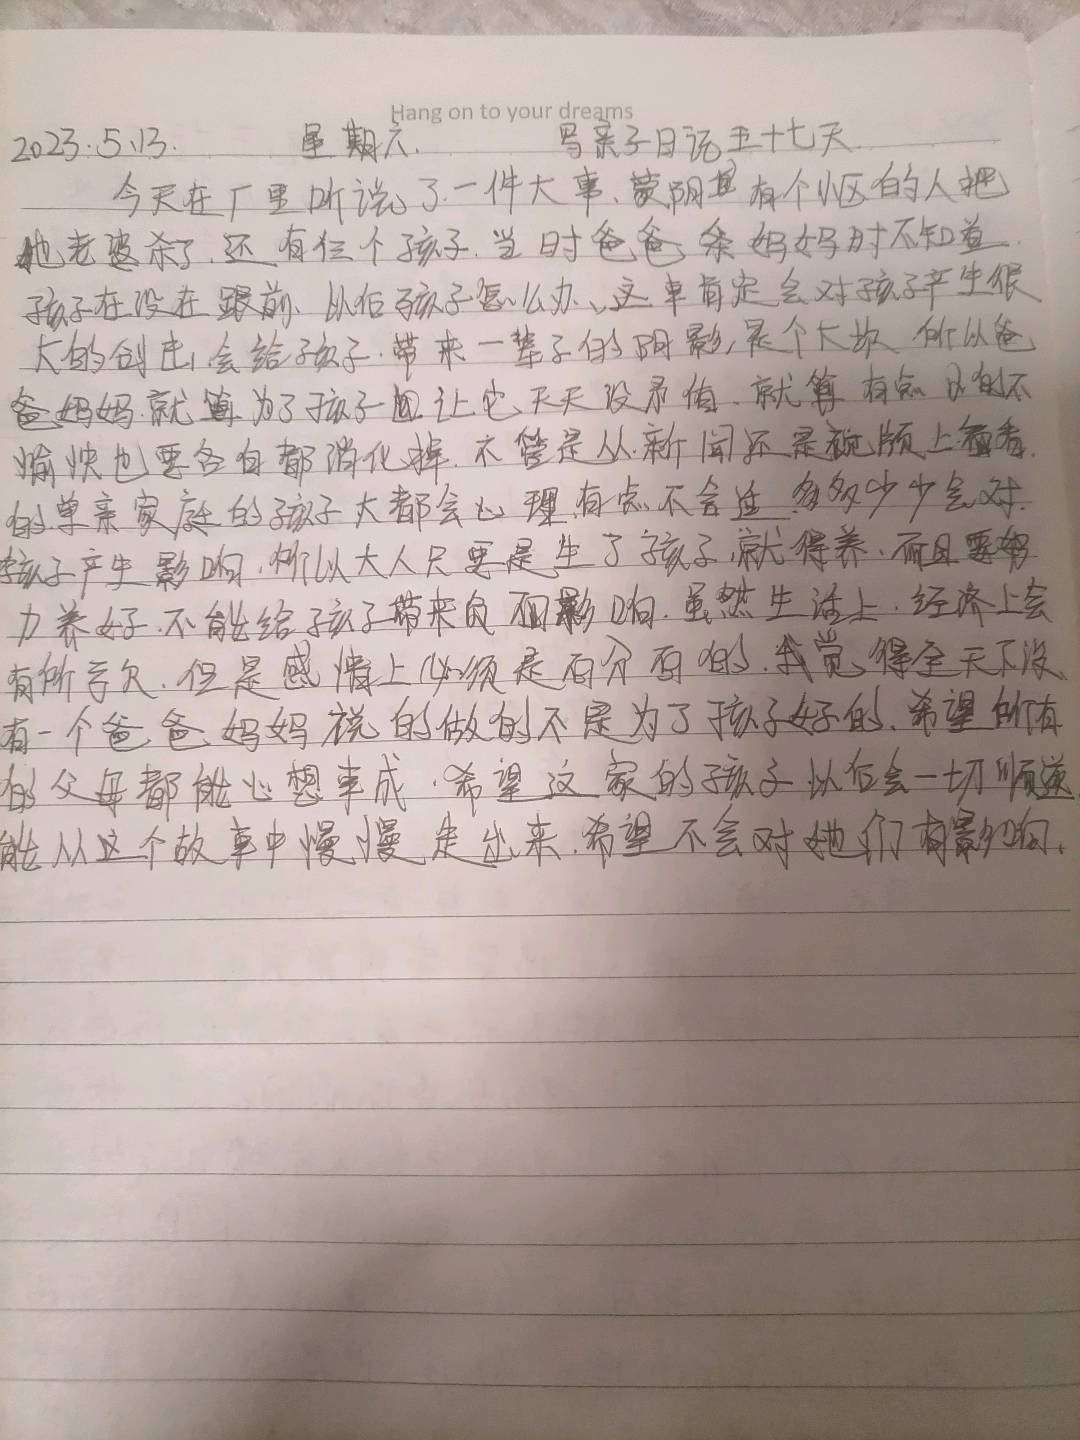 Hang on to your dreams
2023.5.13. 星期六. 写亲子日记五十七天.
今天在厂里听说了一件大事、蒙阴县有个小区的人把
他老婆杀了.还有仨个孩子.当时爸爸杀妈妈时不知道
孩子在没在跟前、以后孩子怎么办、这事肯定会对孩子产生很
大的创击,会给孩子.带来一辈子的阴影,是个大坎 所以爸
爸妈妈.就算为了孩子也让它天天没矛盾.就算有点 的不
愉快也要各自都消化掉.不管是从新闻还是视频上看看.
的单亲家庭的孩子大都会心理有点不合适.多多少少会对.
孩子产生影响.所以大人只要是生了孩子.就得养.而且要努
力养好.不能给孩子带来负面影响.虽然生活上.经济上会
有所亏欠.但是感情上必须是百分百的.我觉得全天下没
有一个爸爸妈妈说的做的不是为了孩子好的.希望所有
的父母都能心想事成.希望这家的孩子以后会一切顺遂.
能从这个故事中慢慢走出来.希望不会对她们有影响.